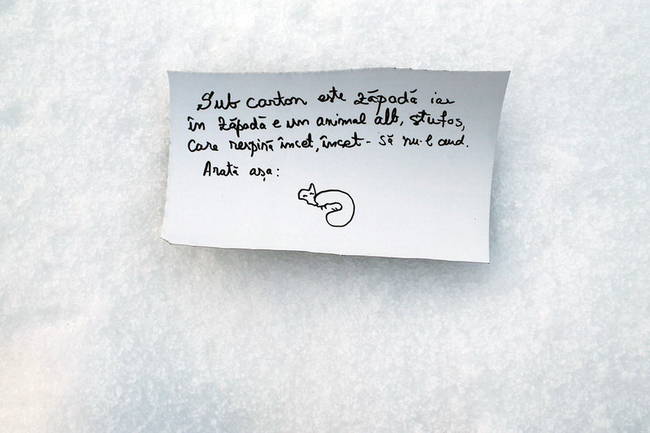 Sub carton este zăpadă iar
în zăpadă e un animal alb, stufos,
care respiră încet, încet - să nu-l aud.
Arată așa: